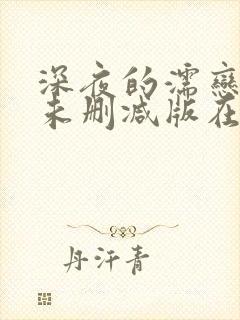 深夜的濡戀
未删减版在
丹汗青